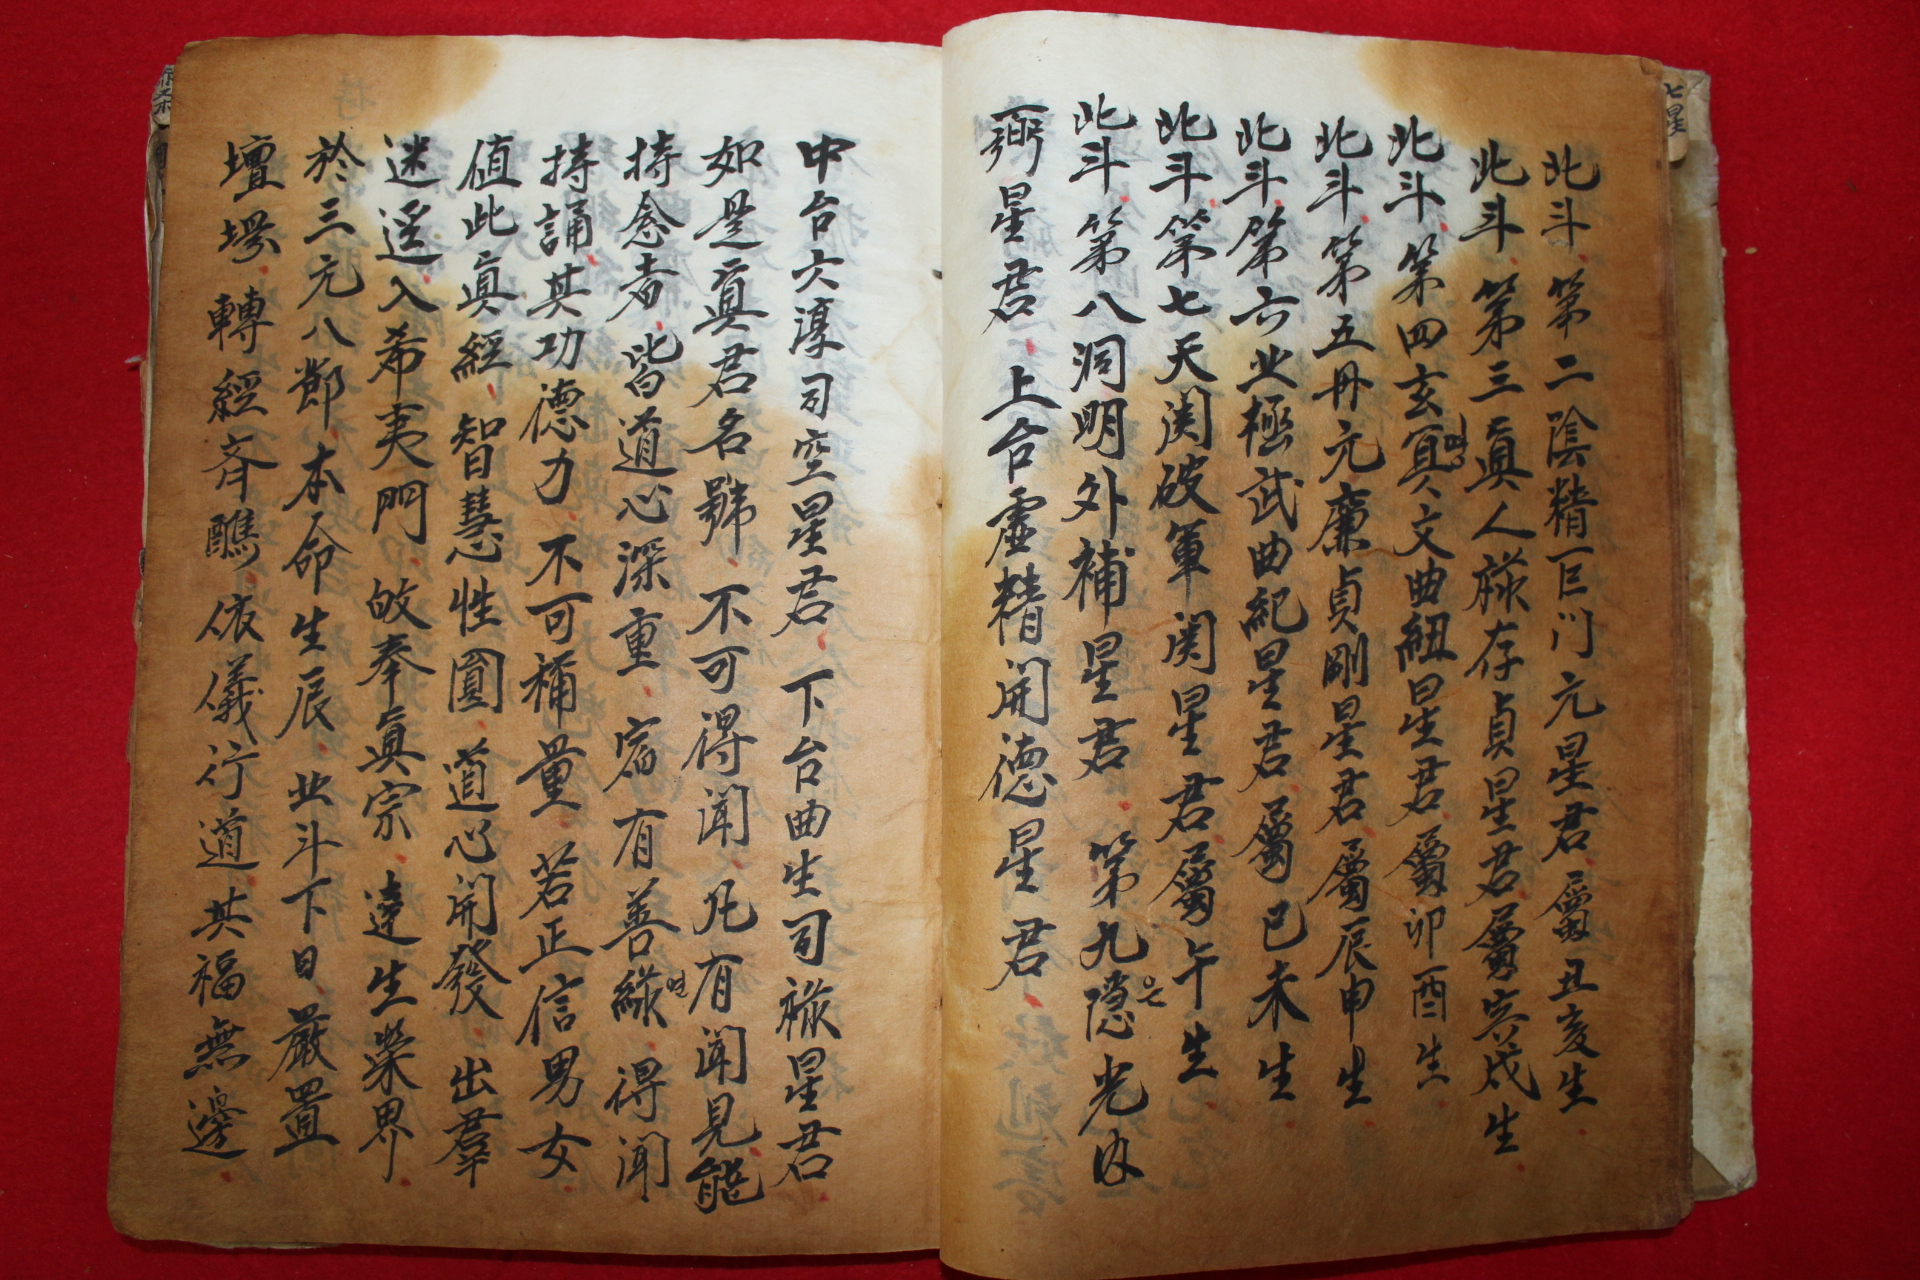 北斗第二陰精巨门元星君屬丑亥生
北斗第三眞人祿存貞星君屬寅戌生
北斗第四玄冥文曲紐星君屬卯酉生
北斗第五丹元廉貞剛星君屬辰申生
北斗第六北極武曲紀星君屬巳未生
北斗第七天関破軍関星君屬午生
北斗第八洞明外補星君第九隱光内
은
弼星君上台虛精開德星君
中台六淳司空星君下台曲生司祿星君
如是眞君名號不可得聞凡有聞見能
持念者皆道心深重宿有善緣得聞
연
持誦其功德力不可稱量若正信男女
值此眞經智慧性圓道心開發出羣
迷逕入希夷門故奉眞宗達生榮界
於三元八節本命生辰北斗下日嚴置
壇塲轉經斉醮依儀行道其福無邊
七星